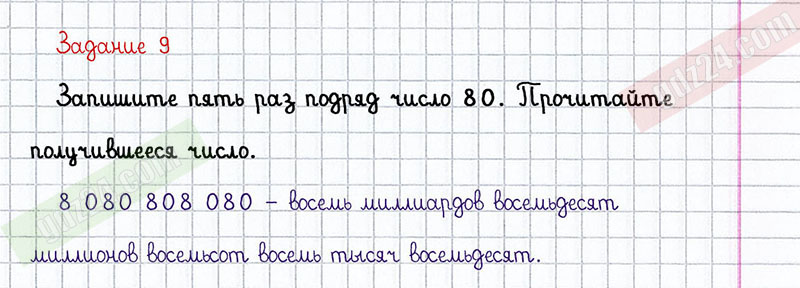 Задание 9
Запишите пять раз подряд число 80. Прочитайте
получившееся число.
8 080 808 080 – восемь миллиардов восемьдесят
миллионов восемьсот восемь тысяч восемьдесят.
gdz24.com
gdz24.com